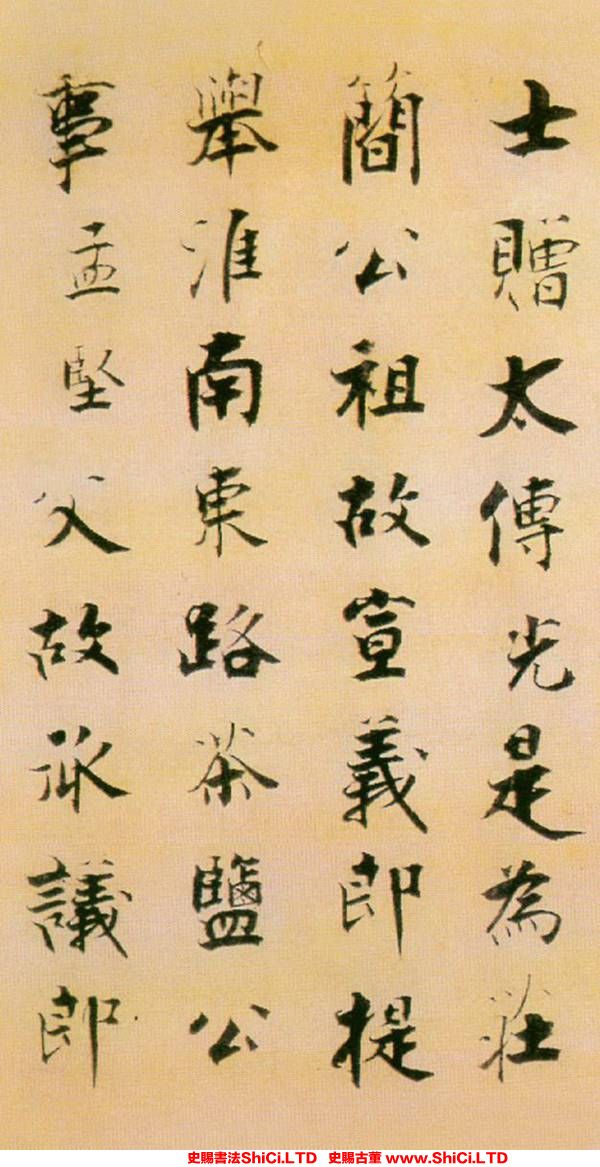 士贈太傅光是為莊
簡公祖故宣義郎提
舉淮南東路茶鹽公
事孟堅父故承議郎
史賜書法ShiCi.LTD 史賜古董 www.ShiCi.LTD